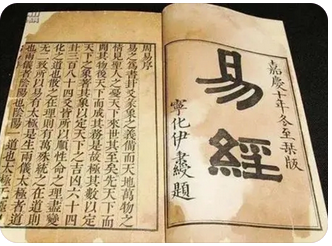 嘉慶十年冬至栞版
易經
寧化伊秉綬題
周易序
易之為書卦爻彖象之義備而天地萬物之
情見聖人之憂天下來世其至矣先天下而
開其物後天下而成其務是故極其數以定
天下之象著其象以定天下之吉凶六十四
卦三百八十四爻皆所以順性命之理盡變
化之道也散之在理則有萬殊統之在道則
无二致所以易有太極是生兩儀太極者道
也兩儀者陰陽也陰陽一道也太極无